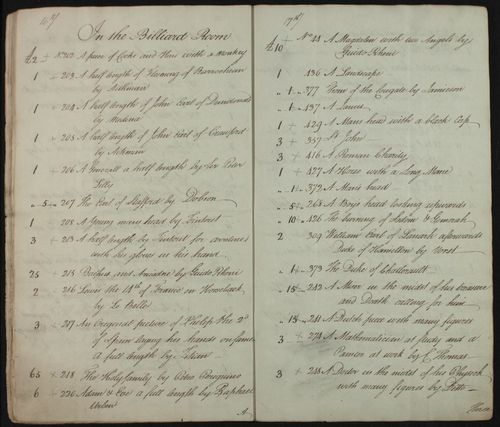 16th
In the Billiard Room
£2 + No 202 A pair of Cocks and Hens with a Monkey
1 + 203 A half length of Fleming of Barrochan
by Aikman
1 + 204 A half length of John Earl of Dundonald
by Medina
1 + 205 A half length of John Earl of Crawford
by Aikman
1 + 206 A half length by Sir Peter
Lilly
5 207 The Earl of Stafford by Dobson
1 208 A Young mans head by Tintoret
3 + 213 A half length by Tintoret for
with his gloves in his hand
25 + 215 Bachus and Ariadne by Guido Rheni
2 216 Lewis the 14th of France on Horseback
by Le Belle
3 + 217 An Original picture of Philip the 2d
of Spain laying his hand on
a full length by Titian
65 + 218 The Holy family by Petro Perugino
6 + 220 Adam & Eve a full length by Raphael
Urbin
A
17th
£10 + No 48 A Magdalen with two Angels by
Guido Rheni
1 436 A Landscape
1 377 View of the Cowgate by Jamieson
1 437 A
1 + 429 A Mans head with a Black Cap
3 + 357 St John
3 + 416 A Roman Charity
1 + 427 A Horse with a Long Mane
1 372 A Man's head
5 268 A Boys head looking upwards
10 426 The burning of Sodom & Gomorah
2 309 William Earl of Lanark afterwards
Duke of Hamilton by
1 373 The Duke of Chatlerault
15 242 A Miser in the midst of his treasure
and Death calling for him
15 241 A Dutch piece with many figures
3 + 274 A Mathematician at study and a
Painter at work by Thomas
3 + 248 A Doctor in the midst of his
with many figures by Ditto